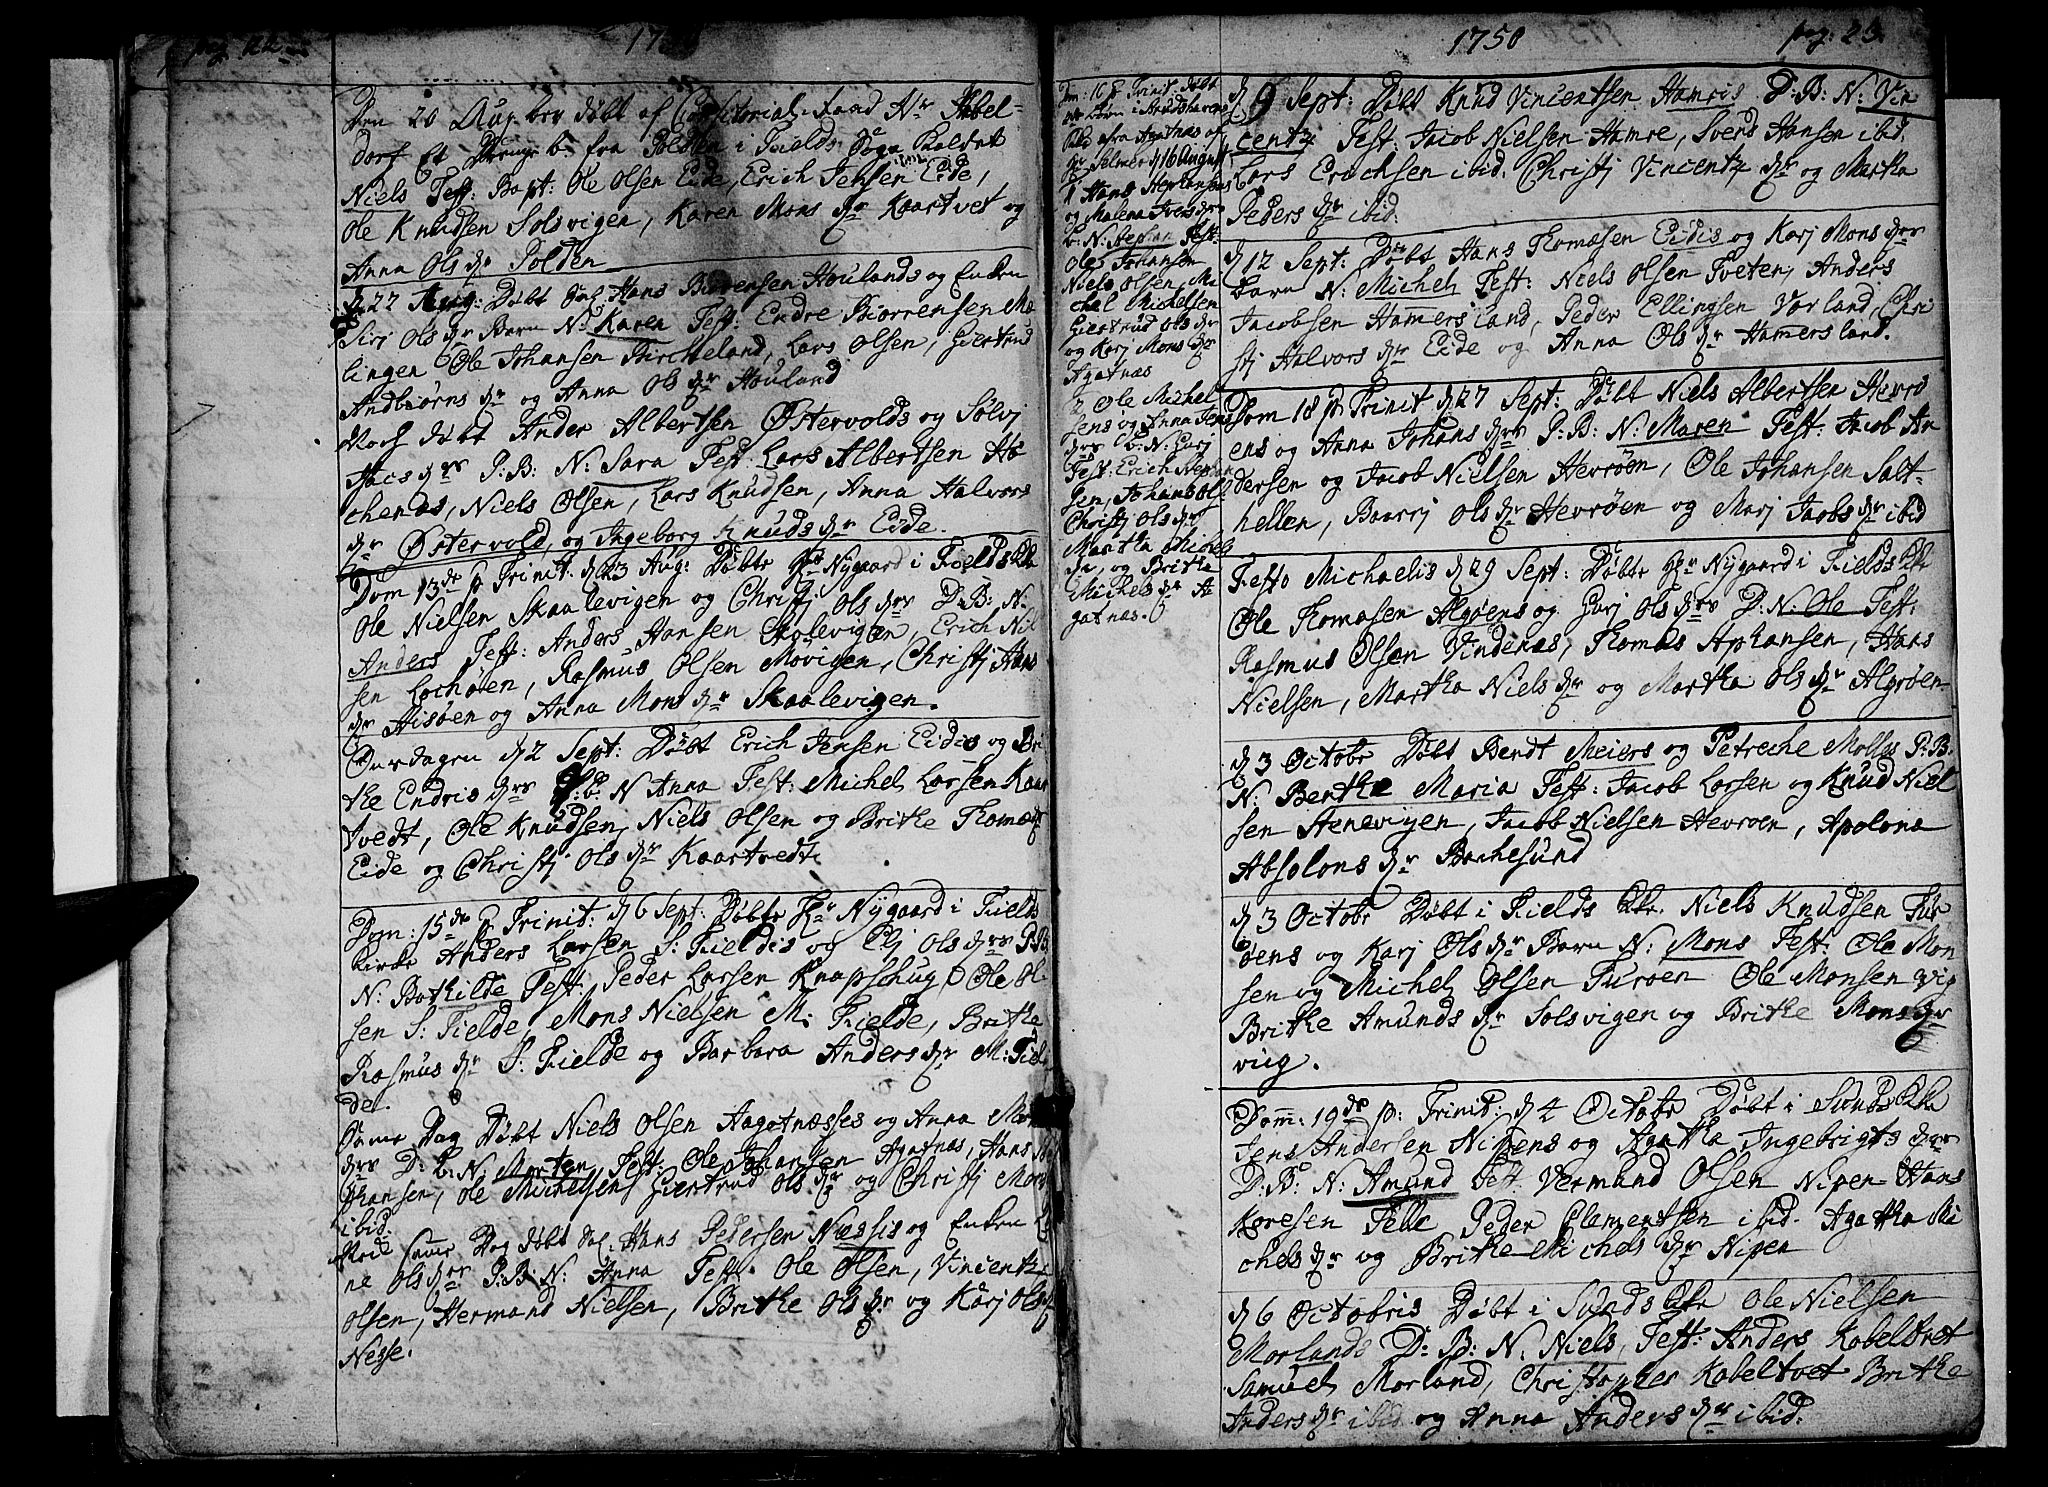 pag. 22
17
Den 20 Aug blev døbt af Consistorial-Raad Hr Stubel-
dorf Et Drenge b: fra Tolden i Fields Sogn kaldet
Niels Test: Bapt: Ole Olsen Eide, Erich Jensen Eide,
Ole Knudsen Solsvigen, Karen Mons dr Kaartvet og
Anna Ols dr Tolden
d 22 Aug: Døbt Sal Hans Børrensen Houlands og Enken
Siri Ols dr Barn N: Karen Test: Endre Biorrensen Mæ
lingen Ole Johansen Bircheland, Lars Olsen, Giertrud
Andbiørns dr og Anna Ols dr Houland
Noch døbt Ander Albertsen Østervolds og Sølvj
Jacs drs P: B: N: Sara Test: Lars Albertsen Ho
chenæs, Niels Olsen, Lars Knudsen, Anna Halvors
dr Østervold, og Ingeborg Knuds dr Eide.
Dom 13de p Trinit: d 23 Aug: Døbte Hr Nygaard i Fields Kke
Ole Nielsen Skaalevigen og Christj Ols drs D: B: N:
Anders Test: Anders Hansen Skolevigen Erich Nil
sen Lochøen, Rasmus Olsen Møvigen, Christj Hans
dr Hisøen og Anna Mons dr Skaalevigen.
Onsdagen d 2 Sept: Døbt Erich Jensen Eides og Bri
the Endris drs P: b: N Anna Test: Michel Larsen Kaar
tvedt, Ole Knudsen, Niels Olsen og Brithe Thomæ dr
Eide og Christj Ols dr Kaartvedt
Dom: 15de p Trinit: d 6 Sept: Døbte Hr Nygaard i Fields
kirke Anders Larsen S: Fieldis og Elj Ols drs P: B:
N: Bothilde Test: Peder Larsen Knapschug, Ole Ol
sen S: Fielde, Mons Nielsen M: Fielde, Brithe
Rasmus dr S: Fielde og Barbara Anders dr M: Fiel
de.
Samme Dag Døbt Niels Olsen Aagotnæsses og Anna Mor
drs D: B: N: Morten, Test: Ole Johansen Agatnæs, Hans
phansen, Ole Michelsen Giertrud Ols dr og Christj Mor
ibid.
Noch samme Dag døbt Sal: Hans Pedersen Næssis og Enken
ne Ols drs P: B: N: Anna Test: Ole Olsen, Vincentz
Olsen, Hermand Nielsen, Brithe Ols dr og Karj Ols dr
Nesse.
1750
pag: 23
Dm: 16 p Trinit: døbt
Børn i
fra Agatnæs af
Hr Selmer d 16 August
1 Hans Stephansens
og Malena Ivers drs
b: N: Stephan Test:
Ole Johansen
Niels Olsen, Mi
chel Michelsen
Giertrud Ols dr
og Karj Mons dr
Agatnæs
2 Ole Michel
sens og Anna Jens
drs b: N: Gurj
Test: Erich Stephan
sen, Johans Ols
Christj Ols dr
Martha Michels
dr, og Brithe
Michels dr A
gatnæs.
d 9 Sept: Døbt Knud Vincentsen Hamris D: B: N: Vin
centz Test: Jacob Nielsen Hamre, Svend Hansen ibid.
Lars Erichsen ibid. Christj Vincentz dr og Martha
Peders dr ibid.
d 12 Sept: Døbt Hans Thomæsen Eidis og Karj Mons drs
barn N: Michel Test: Niels Olsen Tveten, Anders
Jacobsen Hamersland, Peder Ellingsen Vorland, Chri
stj Halvors dr Eide og Anna Ols dr Hamersland.
Dom 18 p Trinit d 27 Sept: Døbt Niels Albertsen Hevrø
ens og Anna Johans drs P: B: N: Maren Test: Jacob An
dersen og Jacob Nielsen Hevrøen, Ole Johansen Salt-
hellen, Baarrj Ols dr Hevrøen og Marj Jacobs dr ibid
Festo Michaelis d 29 Sept: Døbte Hr Nygaard i Fields Kke
Ole Thomæsen Algøens og Gurj Ols drs D: N: Ole Test:
Rasmus Olsen Vindenæs, Thomas Sthansen, Hans
Nielsen, Martha Niels dr og Martha Ols dr Algrøen
d 3 Octobr Døbt Berdt Meiers og Petreche Molles P: B:
N: Berthe Maria Test: Jacob Larsen og Knud Niel
sen Stenevigen, Jacob Nielsen Hevroen, Apolona
Absolons dr Bachesund
d 3 Octobr Døbt i Fields Kke. Niels Knudsen Tur
øens og Karj Ols dr Barn N: Mons Test: Ole Mon
sen og Michel Olsen Turoen Ole Monsen Vig
Brithe Amunds dr Solsvigen og Brithe Mons dr
viig.
Dom: 19de p: Trinit: d 4 Octobr Døbt i Sunds Kke
Jens Andersen Nipens og Agatha Ingebrigts drs
D: B: N: Amund Test: Vermund Olsen Nipen Hans
Koresen Telle Peder Clementsen ibid. Agatha Mi
chels dr og Brithe Michels dr Nipen
d 6 Octobris Døbt i Sunds Kke Ole Nielsen
Morlands D: B: N. Niels, Test: Anders Kobeltvet
Samuel Morland, Christopher Kobeltvet Brithe
Anders dr ibid og Anna Anders dr ibid.